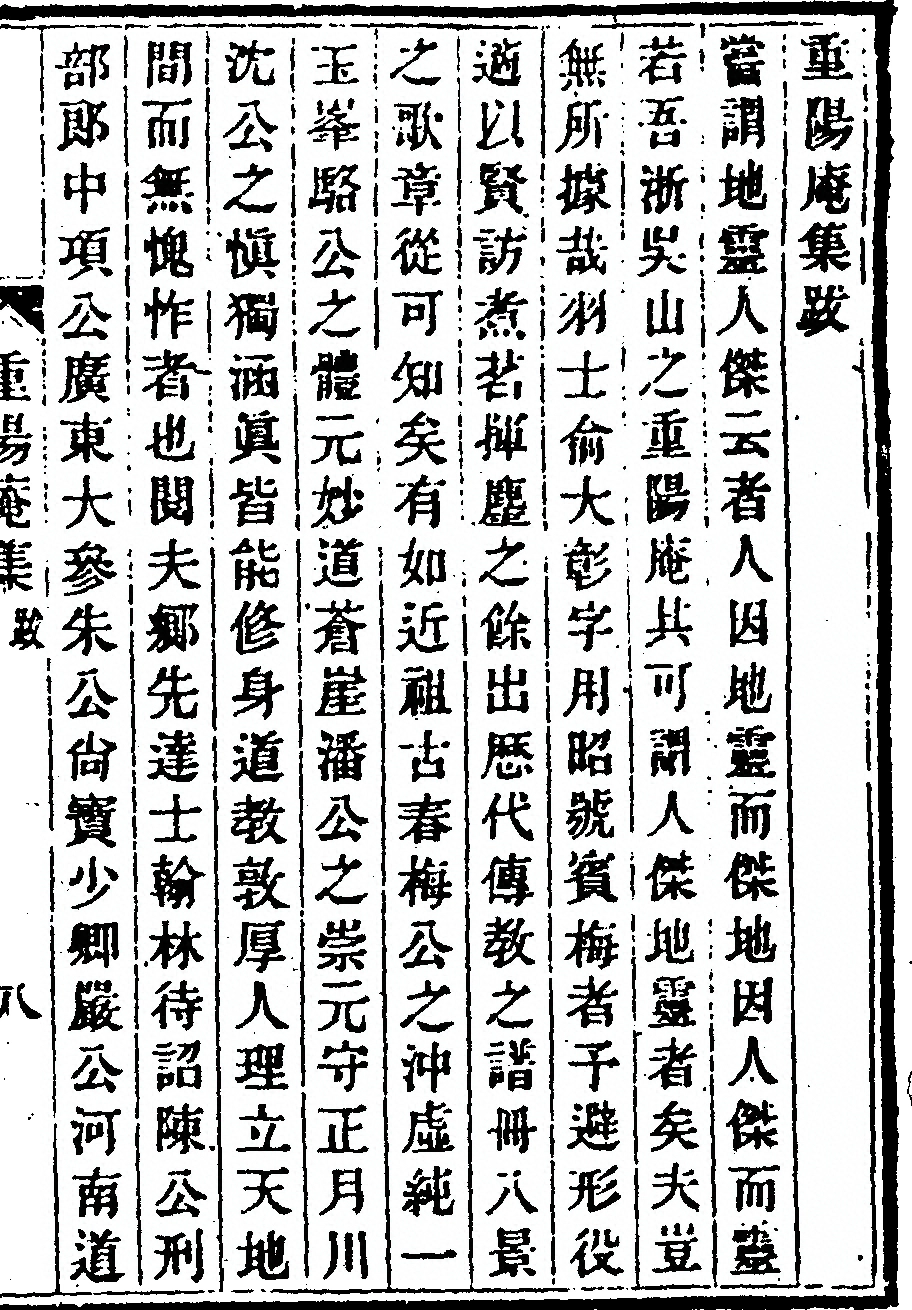 重陽庵集跋
嘗謂地靈人傑云者人因地靈而傑地因人傑而靈
若吾浙吳山之重陽庵共可謂人傑地靈者矣夫豈
無所據哉羽士俞大彰字用昭號賓梅者予避形役
適以賢訪煮茗揮塵之餘出歷代傳教之譜冊八景
之歌章從可知矣有如近祖古春梅公之沖虛純一
玉峯駱公之體元妙道蒼崖潘公之崇元守正月川
沈公之愼獨涵眞皆能修身道教敦厚人理立天地
間而無愧怍者也閱夫鄉先達士翰林待詔陳公刑
部郎中項公廣東大參朱公尙寶少卿嚴公河南道
重陽庵集 跋 八